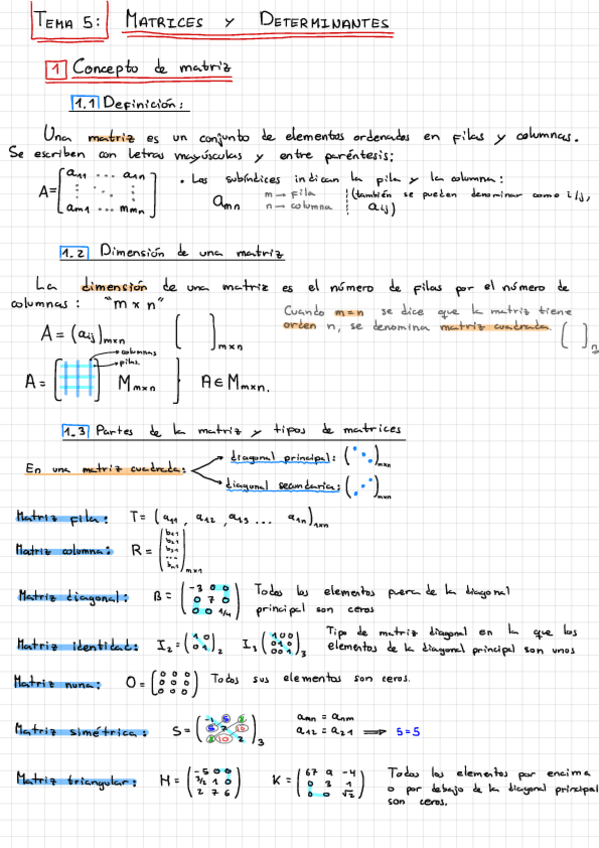 TEMA 5: MATRICES Y DETERMINANTES
1 Concepto de matriz
1.1 Definición:
Una matriz es un conjunto de elementos ordenados en filas y columnas.
Se escriben con letras mayúsculas y entre paréntesis:
A = [ a11 ... a1n
⋮ ⋱ ⋮
am1 ... mmn ]
• Los subíndices indican la fila y la columna:
amn m → fila n → columna
(también se pueden denominar como i/j, aij)
1.2 Dimensión de una matriz
La dimensión de una matriz es el número de filas por el número de
columnas: "m x n"
Cuando m=n se dice que la matriz tiene
orden n, se denomina matriz cuadrada. ( )n
A = (aij)mxn [ ]mxn
→ columnas
→ filas
A = [ ] Mmxn } A ∈ Mmxn.
1.3 Partes de la matriz y tipos de matrices
En una matriz cuadrada:
diagonal principal: ( ⋱ )mxn
diagonal secundaria: ( ⋰ )mxn
Matriz fila: T = ( a11 , a12 , a13 ... a1n )1xn
Matriz columna: R = ( b11 b21 b31 ... bn1 )mx1
Matriz diagonal: B = ( -3 0 0
0 7 0
0 0 1/4 )
Todos los elementos fuera de la diagonal
principal son ceros
Matriz identidad: I2 = ( 1 0
0 1 )2
I3 ( 1 0 0
0 1 0
0 0 1 )3
Tipo de matriz diagonal en la que los
elementos de la diagonal principal son unos
Matriz nuna: O = ( 0 0 0
0 0 0
0 0 0 )
Todos sus elementos son ceros.
Matriz simétrica: S = ( 5
5 7 10
10 2 )3
amn = anm
a12 = a21 ⟹ 5=5
Matriz triangular: H = ( -5 0 0
7/2 1 0
2 7 6 )
K = ( 67 9 -4
0 3 1
0 0 √2 )
Todos los elementos por encima
o por debajo de la diagonal principal
son ceros.